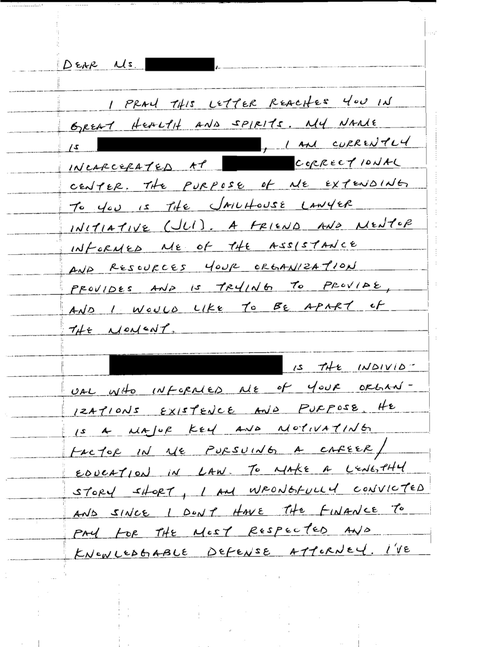 DEAR MS.
I PRAY THIS LETTER REACHES YOU IN
GREAT HEALTH AND SPIRITS. MY NAME
IS , I AM CURRENTLY
INCARCERATED AT CORRECTIONAL
CENTER. THE PURPOSE OF ME EXTENDING
TO YOU IS THE JAILHOUSE LAWYER
INITIATIVE (JLI). A FRIEND AND MENTOR
INFORMED ME OF THE ASSISTANCE
AND RESOURCES YOUR ORGANIZATION
PROVIDES AND IS TRYING TO PROVIDE,
AND I WOULD LIKE TO BE APART OF
THE MOMENT.
IS THE INDIVID-
UAL WHO INFORMED ME OF YOUR ORGAN-
IZATIONS EXISTENCE AND PURPOSE. HE
IS A MAJOR KEY AND MOTIVATING
FACTOR IN ME PURSUING A CAREER/
EDUCATION IN LAW. TO MAKE A LENGTHY
STORY SHORT, I AM WRONGFULLY CONVICTED
AND SINCE I DONT HAVE THE FINANCE TO
PAY FOR THE MOST RESPECTED AND
KNOWLEDGABLE DEFENSE ATTORNEY. I'VE